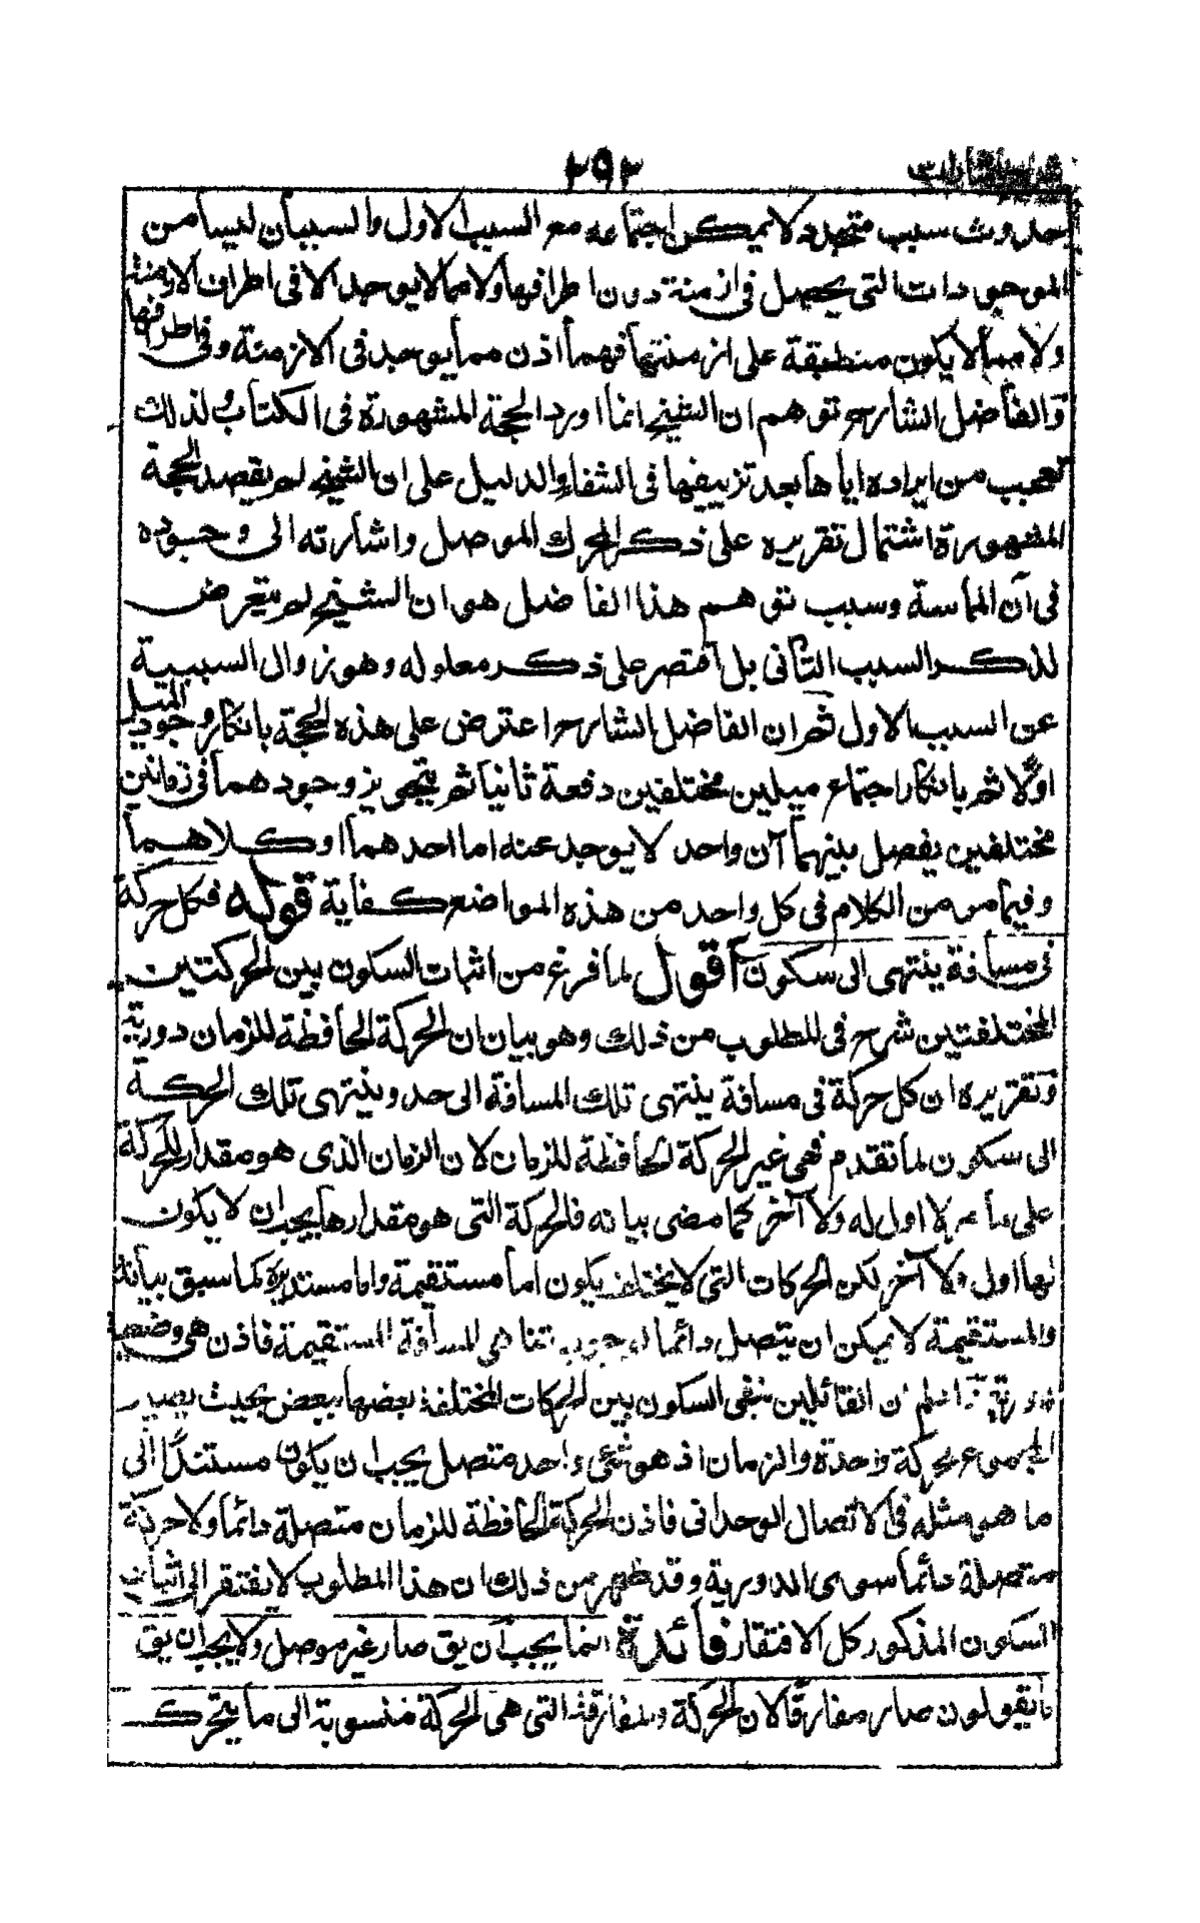 ٢٩٢
بحدوث سبب متجدد لا يمكن اجتماعه مع السبب الاول والسببان ليسا من
الموجودات التى يحصل فى ازمنة دون اطرافها ولا مما لا يوجد الا فى اطراف الازمنة
ولا مما لا يكون منطبقة على ازمنتهما فهما اذن مما يوجد فى الازمنة وفى اطرافها
والفاضل الشارح توهم ان الشيخ انما اورد الحجة المشهورة فى الكتاب ولذلك
تعجب من ايراده اياها بعد تزييفها فى الشفاء والدليل على ان الشيخ لم يقصد الحجة
المشهورة اشتمال تقريره على ذكر المحرك الموصل واشارته الى وجوده
فى آن المماسة وسبب توهم هذا الفاضل هو ان الشيخ لم يتعرض
لذكر السبب الثانى بل اقتصر على ذكر معلوله وهو زوال السببية
عن السبب الاول ثم ان الفاضل الشارح اعترض على هذه الحجة بانكار وجود الميل
اولا ثم بانكار اجتماع ميلين مختلفين دفعة ثانيا ثم بتجويز وجودهما فى زمانين
مختلفين يفصل بينهما آن واحد لا يوجد عنه اما احدهما او كلاهما
وفيما مر من الكلام فى كل واحد من هذه المواضع كفاية قوله فكل حركة
فى مسافة ينتهى الى سكون اقول لما فرغ من اثبات السكون بين الحركتين
المختلفتين شرح فى المطلوب من ذلك وهو بيان ان الحركة الحافظة للزمان دورية
وتقريره ان كل حركة فى مسافة ينتهى تلك المسافة الى حد وينتهى تلك الحركة
الى سكون لما تقدم فهى غير الحركة الحافظة للزمان لان الزمان الذى هو مقدار للحركة
على ما مر لا اول له ولا آخر كما مضى بيانه فالحركة التى هو مقدارها يجب ان لا يكون
لها اول ولا آخر لكن الحركات التى لا يختلف يكون اما مستقيمة واما مستديرة كما سبق بيانه
والمستقيمة لا يمكن ان يتصل دائما لوجوب تناهى المسافة المستقيمة فاذن هى وضعية
دورية واعلم ان القائلين بنفى السكون بين الحركات المختلفة بعضها ببعض بحيث يصير
المجموع حركة واحدة والزمان اذ هو شىء واحد متصل يجب ان يكون مستندا الى
ما هو مثله فى الاتصال الوحدانى فاذن الحركة الحافظة للزمان متصلة دائما ولا حركة
متصلة دائما سوى الدورية وقد ظهر من ذلك ان هذا المطلوب لا يفتقر الى اثبات
السكون المذكور كل الافتقار فائدة انما يجب ان يق صار غير موصل ولا يجب ان يق
ما يقولون صار مفارقا لان الحركة والمفارقة التى هى الحركة منسوبة الى ما يتحرك